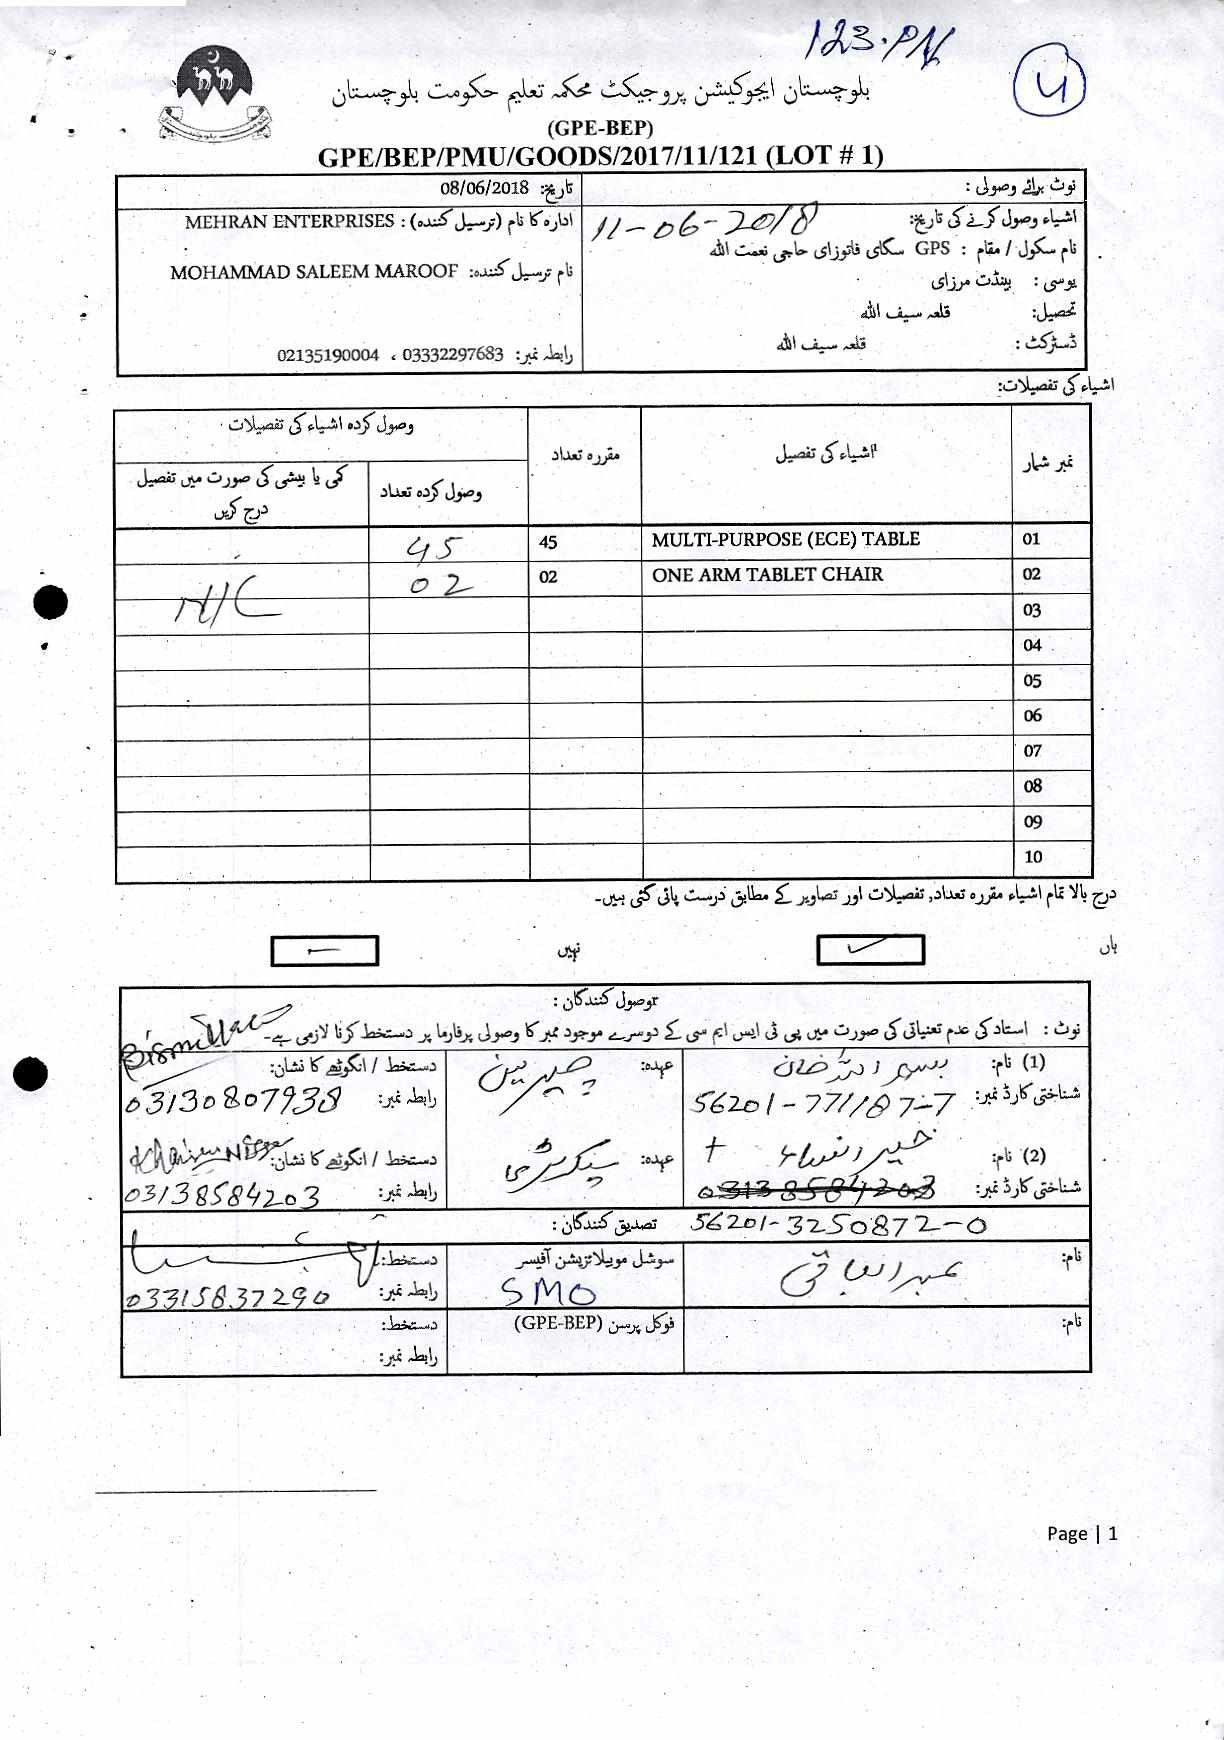 123.PN
4
بلوچستان ایجوکیشن پروجیکٹ محکمہ تعلیم حکومت بلوچستان
(GPE-BEP)
GPE/BEP/PMU/GOODS/2017/11/121 (LOT # 1)
نوٹ برائے وصولی :
تاریخ: 08/06/2018
اشیاء وصول کرنے کی تاریخ: 11-06-2018
ادارہ کا نام (ترسیل کنندہ) : MEHRAN ENTERPRISES
نام سکول / مقام : GPS سگای فاتوزای حاجی نعمت اللہ
نام ترسیل کنندہ: MOHAMMAD SALEEM MAROOF
یوسی : بینڈت مرزای
تحصیل: قلعہ سیف اللہ
ڈسٹرکٹ : قلعہ سیف اللہ
رابطہ نمبر: 03332297683 ، 02135190004
اشیاء کی تفصیلات:
نمبر شمار
اشیاء کی تفصیل
مقررہ تعداد
وصول کردہ اشیاء کی تفصیلات
وصول کردہ تعداد
کمی یا بیشی کی صورت میں تفصیل
درج کریں
01 MULTI-PURPOSE (ECE) TABLE 45 45
02 ONE ARM TABLET CHAIR 02 02
03
04
05
06
07
08
09
10
درج بالا تمام اشیاء مقررہ تعداد, تفصیلات اور تصاویر کے مطابق درست پائی گئی ہیں۔
ہاں ✓ نہیں —
وصول کنندگان :
نوٹ : استاد کی عدم تعیناتی کی صورت میں پی ٹی ایس ایم سی کے دوسرے موجود ممبر کا وصولی پرفارما پر دستخط کرنا لازمی ہے۔
(1) نام: بسم اللہ خان
عہدہ: چیرمین
دستخط / انگوٹھے کا نشان: Bismillah
شناختی کارڈ نمبر:
رابطہ نمبر: 03130807938
(2) نام: خیر النساء
عہدہ: سیکرٹری
دستخط / انگوٹھے کا نشان:
شناختی کارڈ نمبر: 03138584203
رابطہ نمبر: 03138584203
56201-3250872-0
تصدیق کنندگان :
نام: عبدالباقی
سوشل موبیلائزیشن آفیسر
SMO
دستخط:
رابطہ نمبر: 03315837290
نام:
فوکل پرسن (GPE-BEP)
دستخط:
رابطہ نمبر:
Page | 1